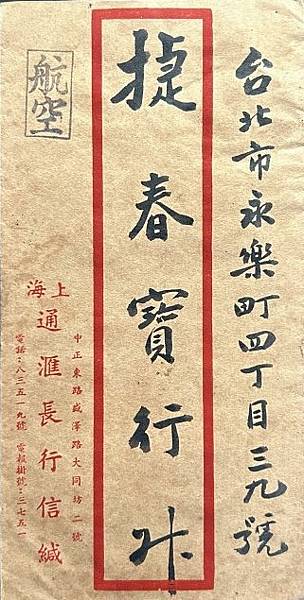 台北市永樂町四丁目三九號
捷春寶行
航空
上海
中正東路盛澤路大同坊二號
通滙長行信緘
電話：八三五一九號 電報掛號：三七五一